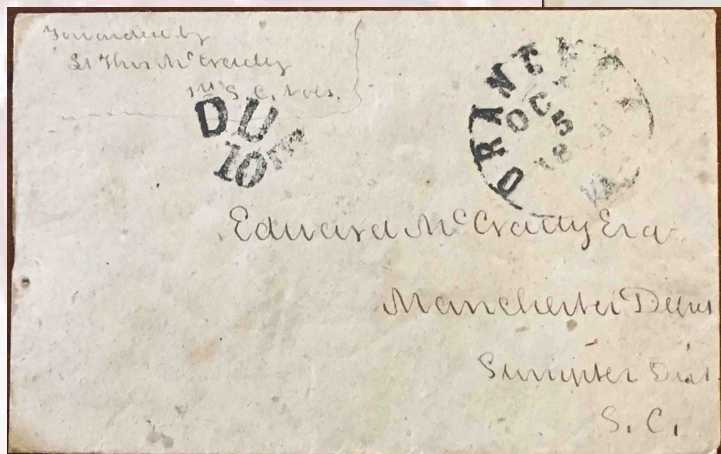 Forwarded by
Lt Thos McCrady
1st S. C. Vols.
DUE
10
ORANGE
OCT
5
18
VA
Edward McCrady Esq
Manchester Depot
Sumpter Dist
S. C.